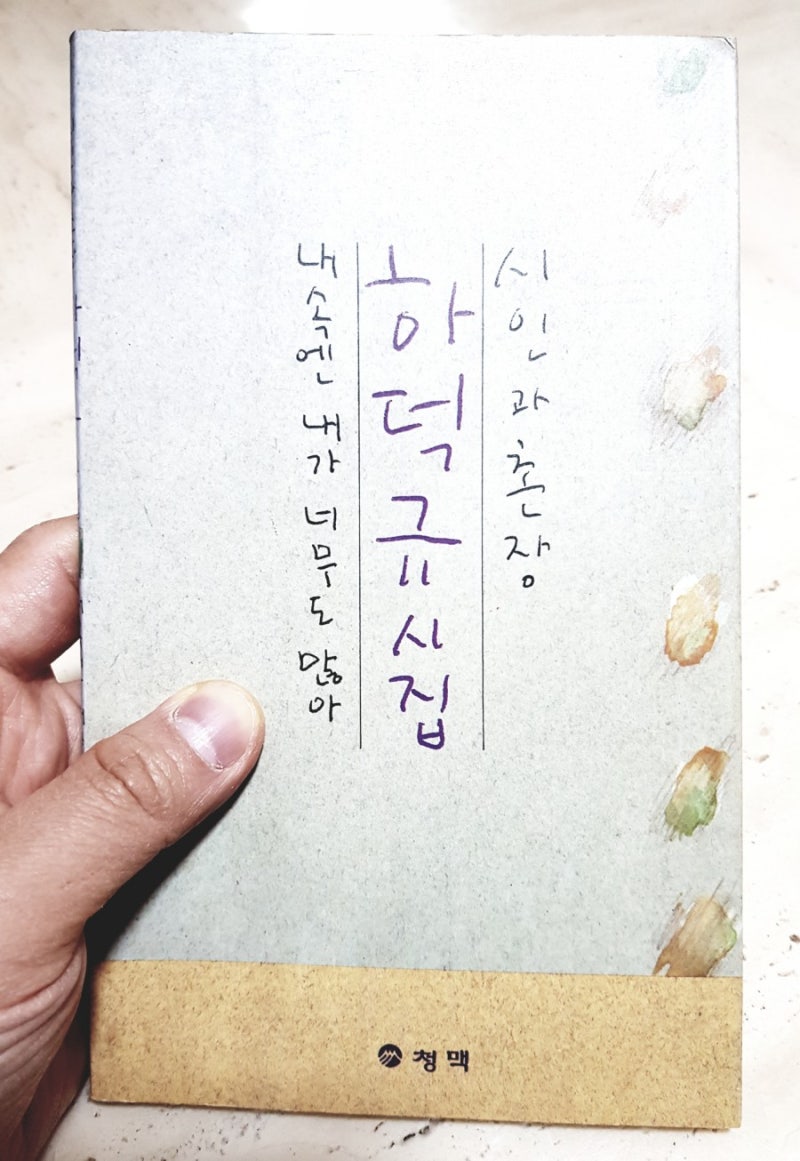 시인과 촌장
하덕규 시집
내 속엔 내가 너무도 많아
청맥